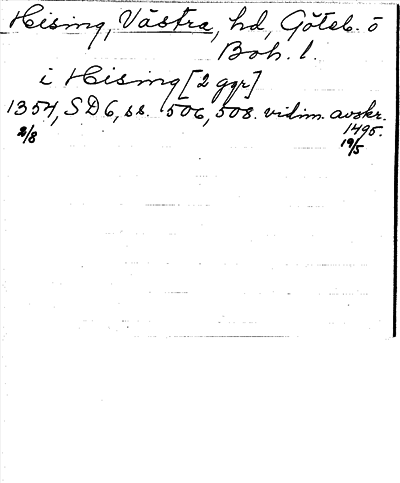 Hising, Västra, hd, Göteb. o
Boh. l.
i Hising [2 ggr]
1354, SD6, ss. 506, 508. vidim. avskr.
1495.
2/8 19/5